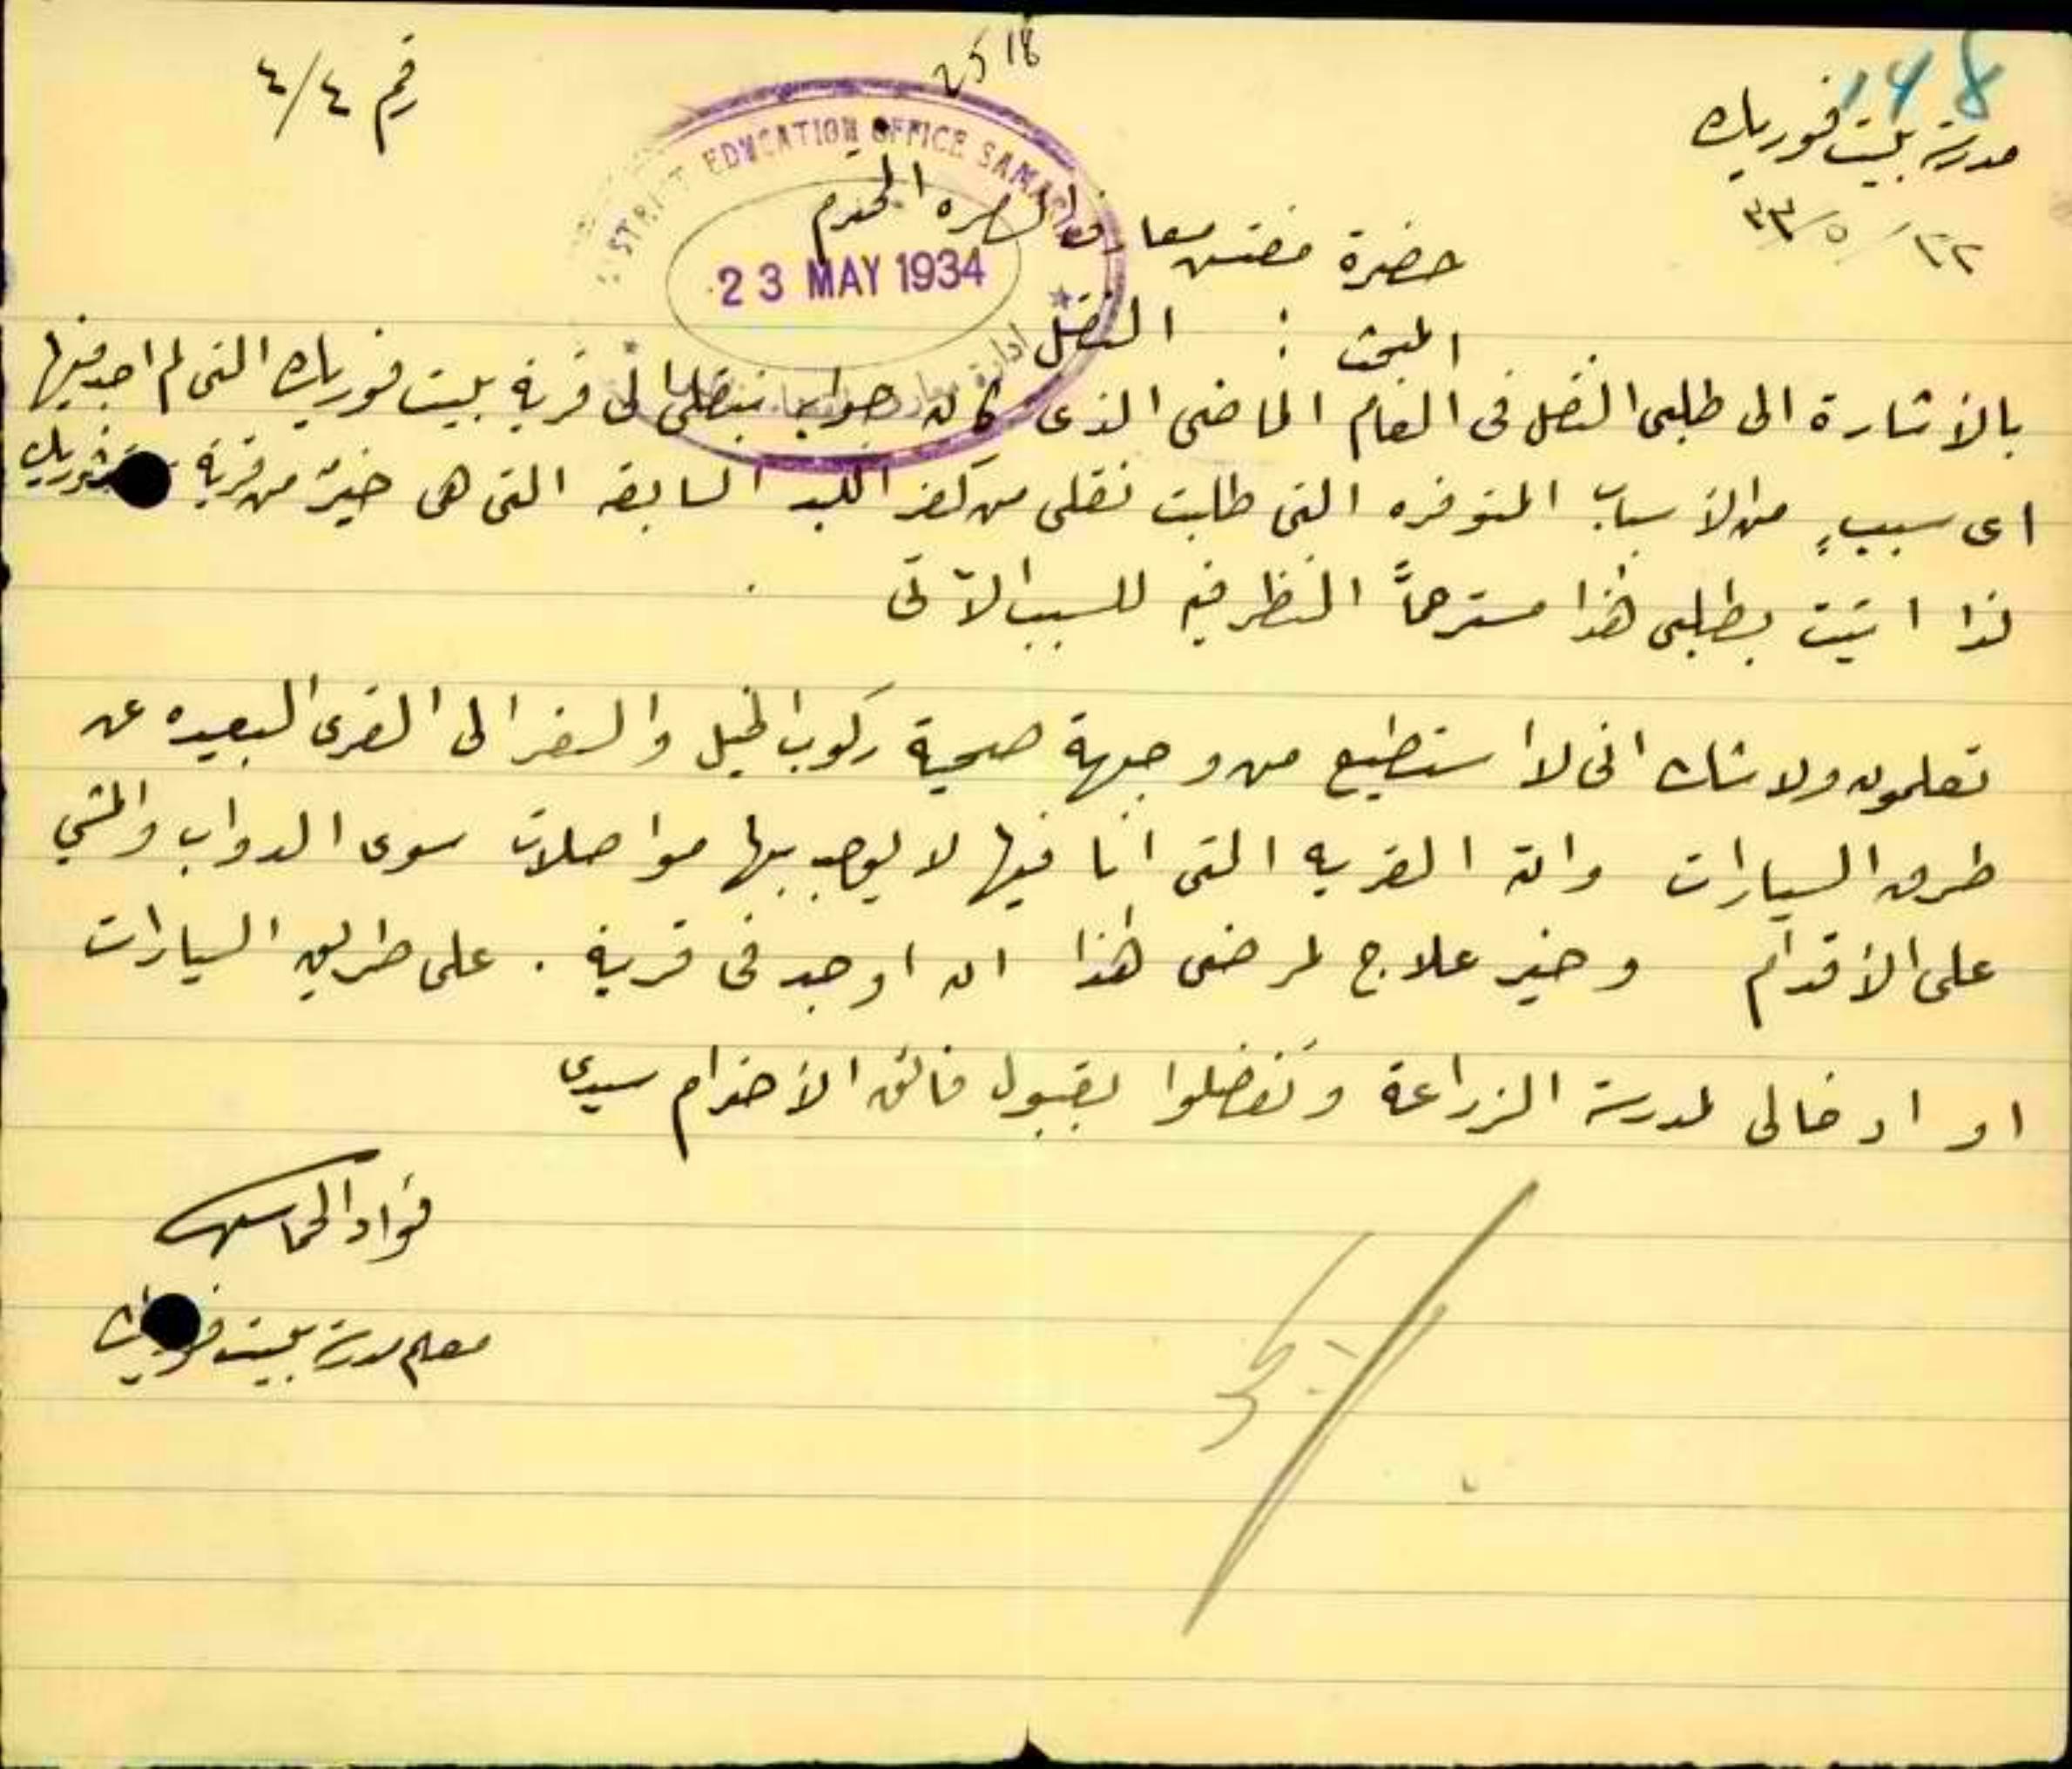 148
2518
مدرسة بيت فوريك
رقم ٤/٤
٢٢/٥/٣٣
DISTRICT EDUCATION OFFICE SAMARIA
23 MAY 1934
ادارة معارف
حضرة مفتش معارف السامره المحترم
المبحث : النقل
بالأشارة الى طلبي النقل في العام الماضي الذي كان جوابه بنقلي الى قرية بيت فوريك التي لم اجد فيها
اى سببٍ من الأسباب المتوفره التي طلبت نقلي من كفر اللبد السابقه التي هي خيرٌ من قرية فوريك
لذا اتيت بطلبي هذا مسترحماً النظر فيه للسبب الآتى
تعلمون ولا شك انى لا استطيع من وجهة صحية ركوب الخيل والسفر الى القرى البعيده عن
طرق السيارات وان القريه التي انا فيها لا يوجد بها مواصلات سوى الدواب والمشي
على الأقدام وخير علاج لمرضى هذا ان اوجد في قرية . على طريق السيارات
او ادخالي لمدرسة الزراعة وتفضلوا بقبول فائق الأحترام سيدى
فؤاد
معلم مدرسة بيت فوريك